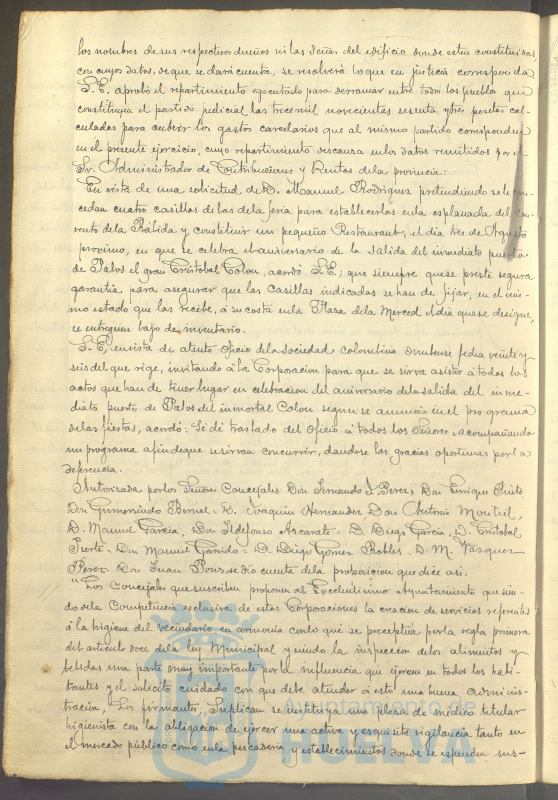 los nombres de sus respectivos dueños ni las señas del edificio donde esten constituidas
con cuyos datos, de que se dará cuenta, se resolverá lo que en justicia corresponda
S. E. aprobó el repartimiento ejecutado para derramar entre todos los pueblos que
constituyen el partido judicial las tres mil novecientas sesenta y tres pesetas cal-
culadas para cubrir los gastos carcelarios que al mismo partido corresponden
en el presente ejercicio, cuyo repartimiento descansa en los datos remitidos por el
Sr. Administrador de Contribuciones y Rentas de la provincia:
En vista de una solicitud de D. Manuel Rodriguez pretendiendo se le con-
cedan cuatro casillas de las de la feria para establecerlas en la esplanada del Con-
vento de la Rabida y constituir un pequeño Restaurant, el dia tres de Agosto
proximo, en que se celebra el aniversario de la salida del inmediato puerto
de Palos el gran Cristobal Colon, acordó S. E; que siempre que se preste segura
garantia para asegurar que las casillas indicadas se han de fijar, en el mis-
mo estado que las recibe, á su costa en la Plaza de la Merced el dia que se designe,
se entreguen bajo de inventario.
S. E, en vista de atento oficio de la Sociedad colombina onubense fecha veinte y
seis del que rige, invitando á la Corporacion para que se sirva asistir á todos los
actos que han de tener lugar en celebracion del aniversario de la salida del inme-
diato puerto de Palos del inmortal Colon segun se anuncia en el programa
de las fiestas, acordó: Se dé traslado del oficio á todos los Señores, acompañando
un programa afin de que se sirvan concurrir, dandose las gracias oportunas por la
deferencia.
Autorizada por los Señores Concejales Don Fernando L. Perez, Don Enrique Prieto
Don Gumersindo Bernal - D. Joaquin Hernandez Don Antonio Montiel,
D. Manuel Garcia, Don Ildefonso Azcarate - D. Diego Garcia, D. Cristobal
Don Manuel Garrido - D. Diego Gomez Robles - D. M. Vazquez
Perez - Don Juan Pons se dio cuenta de la proposicion que dice asi.
"Los Concejales que suscriben proponen al Excelentisimo Ayuntamiento que sien-
do de la Competencia esclusiva de estas Corporaciones la creacion de servicios referentes
á la higiene del vecindario en armonia con lo que se preceptúa por la regla primera
del articulo doce de la ley Municipal y siendo la inspeccion de los alimentos y
bebidas una parte muy importante por la influencia que ejercen en todos los habi-
tantes y el solicito cuidado con que debe atender á esto una buena adminis-
tracion, Los firmantes, Suplican se instituya una plaza de médico titular
higienista con la obligacion de ejercer una activa y esquisita vigilancia tanto en
el mercado público como en la pescaderia y establecimientos donde se espenden sus-
Ayuntamiento de
HUELVA